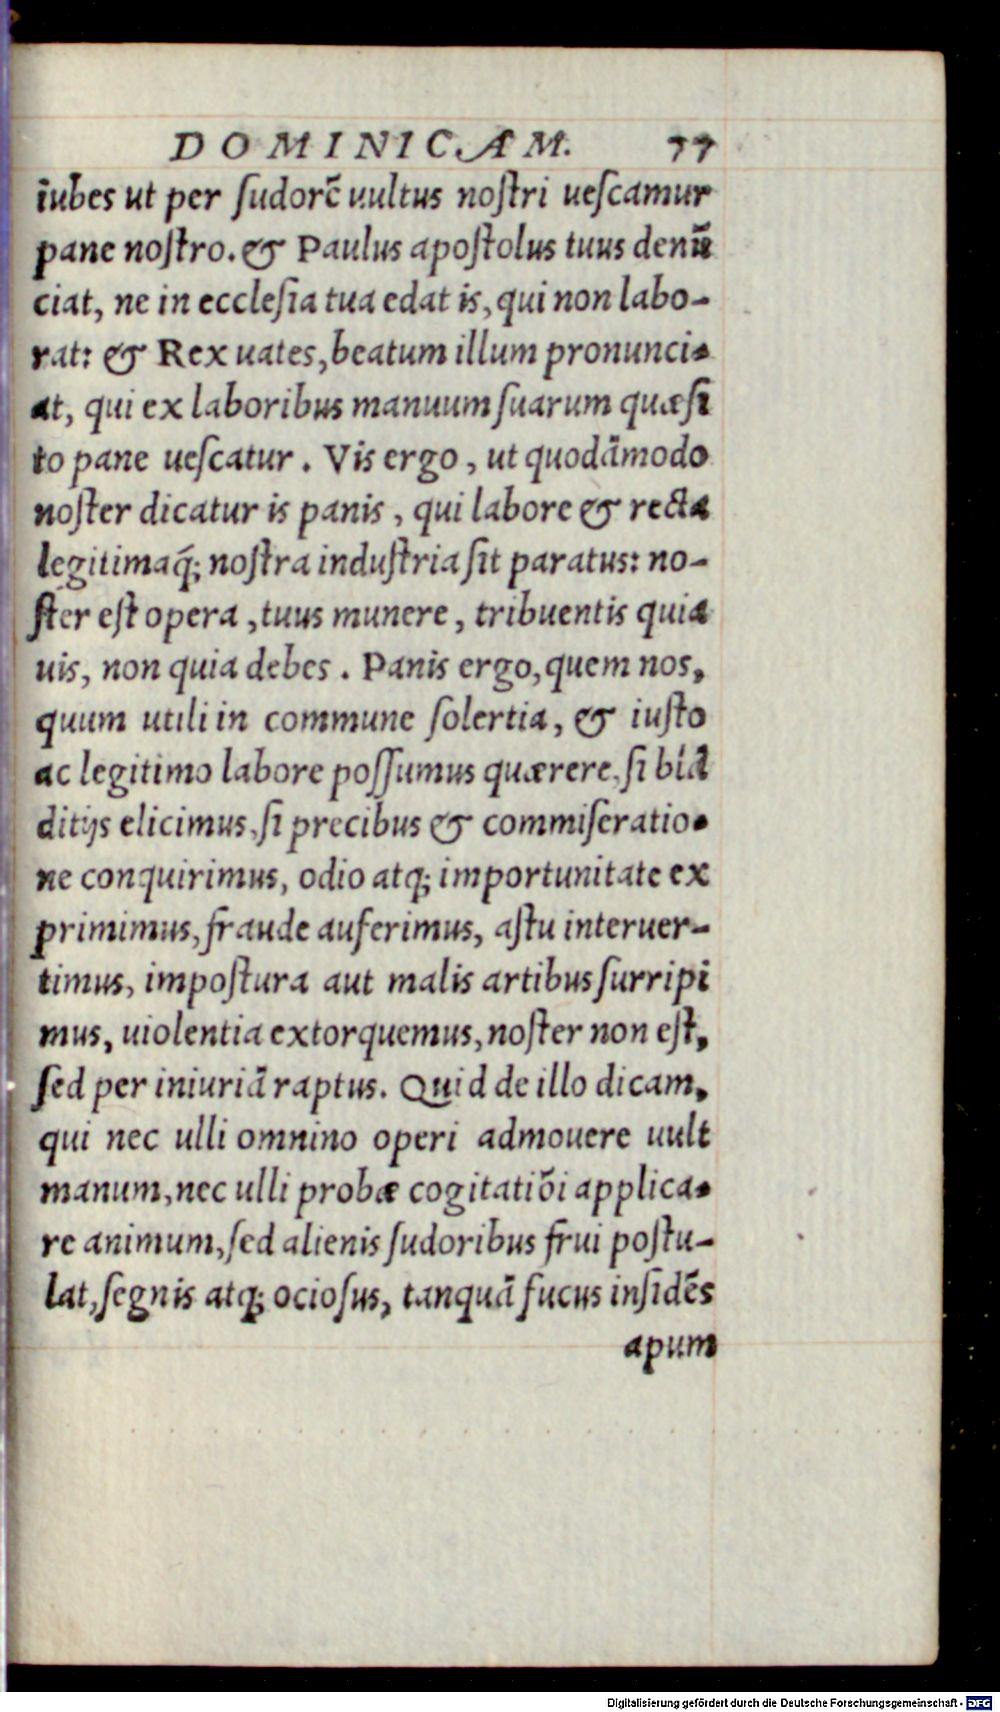 DOMINICAM. 77
iubes ut per ſudorē uultus noſtri ueſcamur
pane noſtro. & Paulus apoſtolus tuus denū
ciat, ne in eccleſia tua edat is, qui non labo-
rat: & Rex uates, beatum illum pronunci-
at, qui ex laboribus manuum ſuarum quæſi
to pane ueſcatur. Vis ergo, ut quodāmodo
noſter dicatur is panis, qui labore & recta
legitimaq́; noſtra induſtria ſit paratus: no-
ſter eſt opera, tuus munere, tribuentis quia
uis, non quia debes. Panis ergo, quem nos,
quum utili in commune ſolertia, & iuſto
ac legitimo labore poſſumus quærere, ſi blā
ditijs elicimus, ſi precibus & commiſeratio-
ne conquirimus, odio atq; importunitate ex
primimus, fraude auferimus, aſtu interuer-
timus, impoſtura aut malis artibus ſurripi
mus, uiolentia extorquemus, noſter non eſt,
ſed per iniuriā raptus. Quid de illo dicam,
qui nec ulli omnino operi admouere uult
manum, nec ulli probæ cogitatiōi applica-
re animum, ſed alienis ſudoribus frui poſtu-
lat, ſegnis atq; ocioſus, tanquā fucus inſidēs
apum
Digitalisierung gefördert durch die Deutsche Forschungsgemeinschaft - DFG